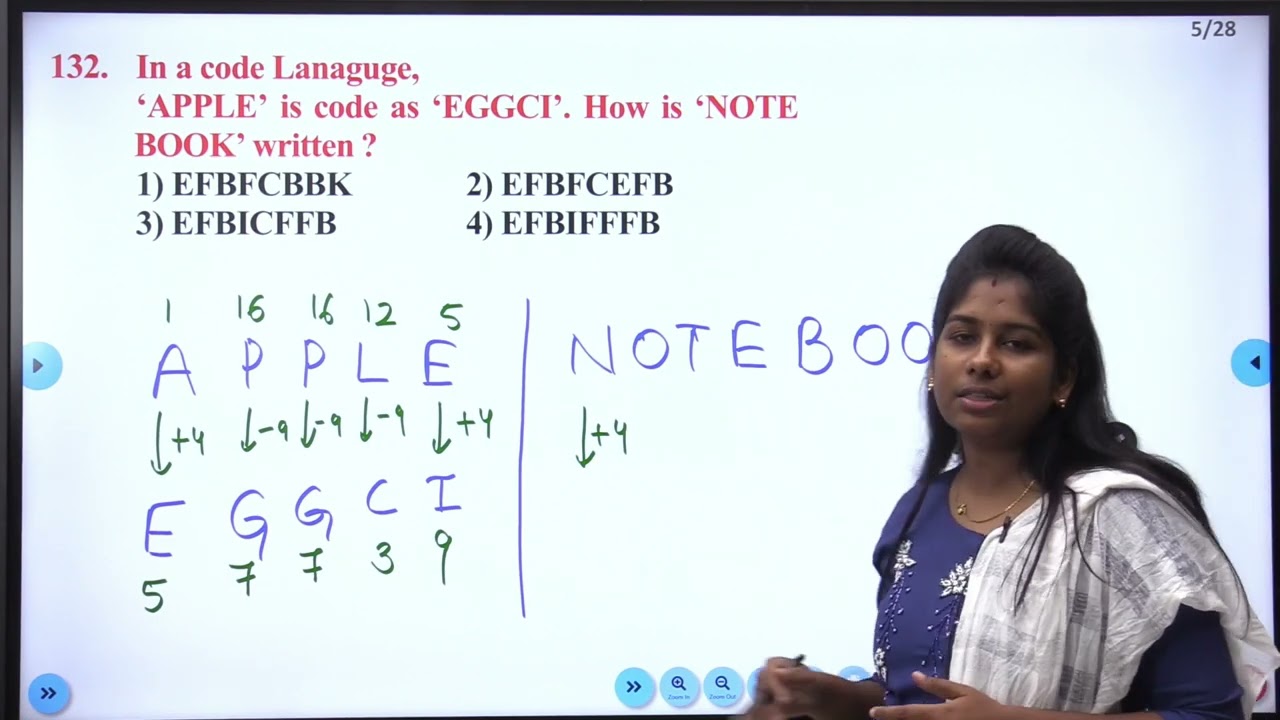 5/28
132. In a code Lanaguge,
‘APPLE’ is code as ‘EGGCI’. How is ‘NOTE
BOOK’ written ?
1) EFBFCBBK 2) EFBFCEFB
3) EFBICFFB 4) EFBIFFFB
1 16 16 12 5
A P P L E
N O T E B O O
+4 -9 -9 -9 +4
+4
E G G C I
5 7 7 3 9
Zoom In Zoom Out